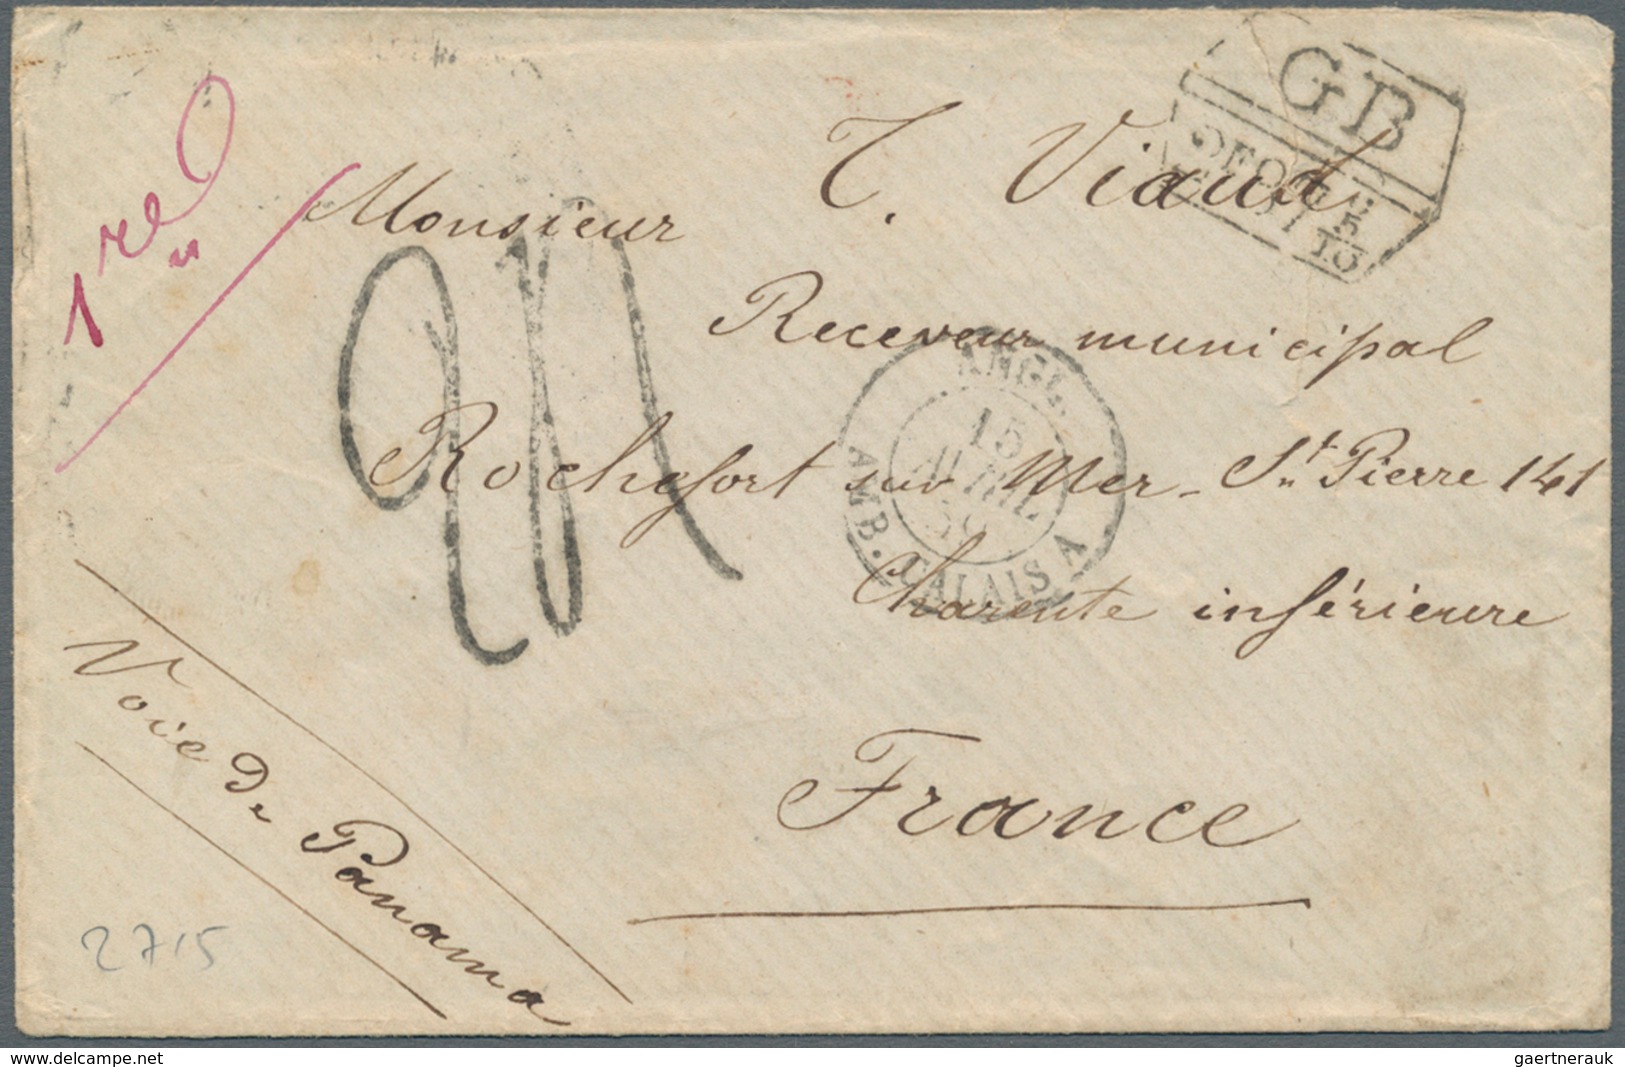 1re
GB
T. Viaud
Monsieur
Receveur municipal
ANGL.
15
AVRIL
59
AMB. CALAIS A
Rochefort sur Mer - St. Pierre 141
Charente inférieure
France
Voie De Panama
2715
www.delcampe.net
gaertnerauk